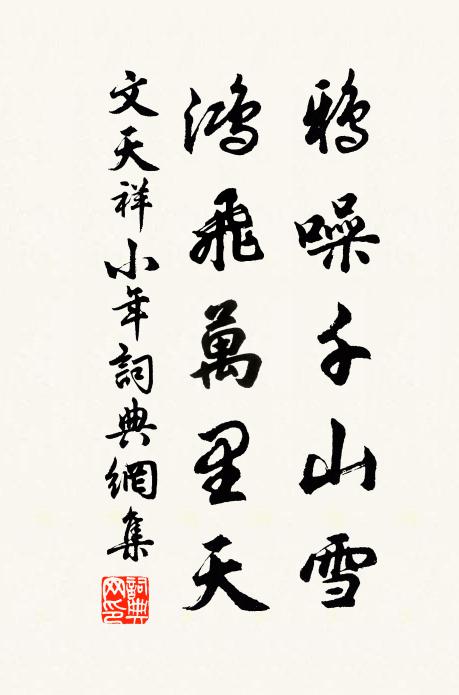 鴉噪千山雪
鴻飛萬里天
文天祥小年詞典網集
詞典網印